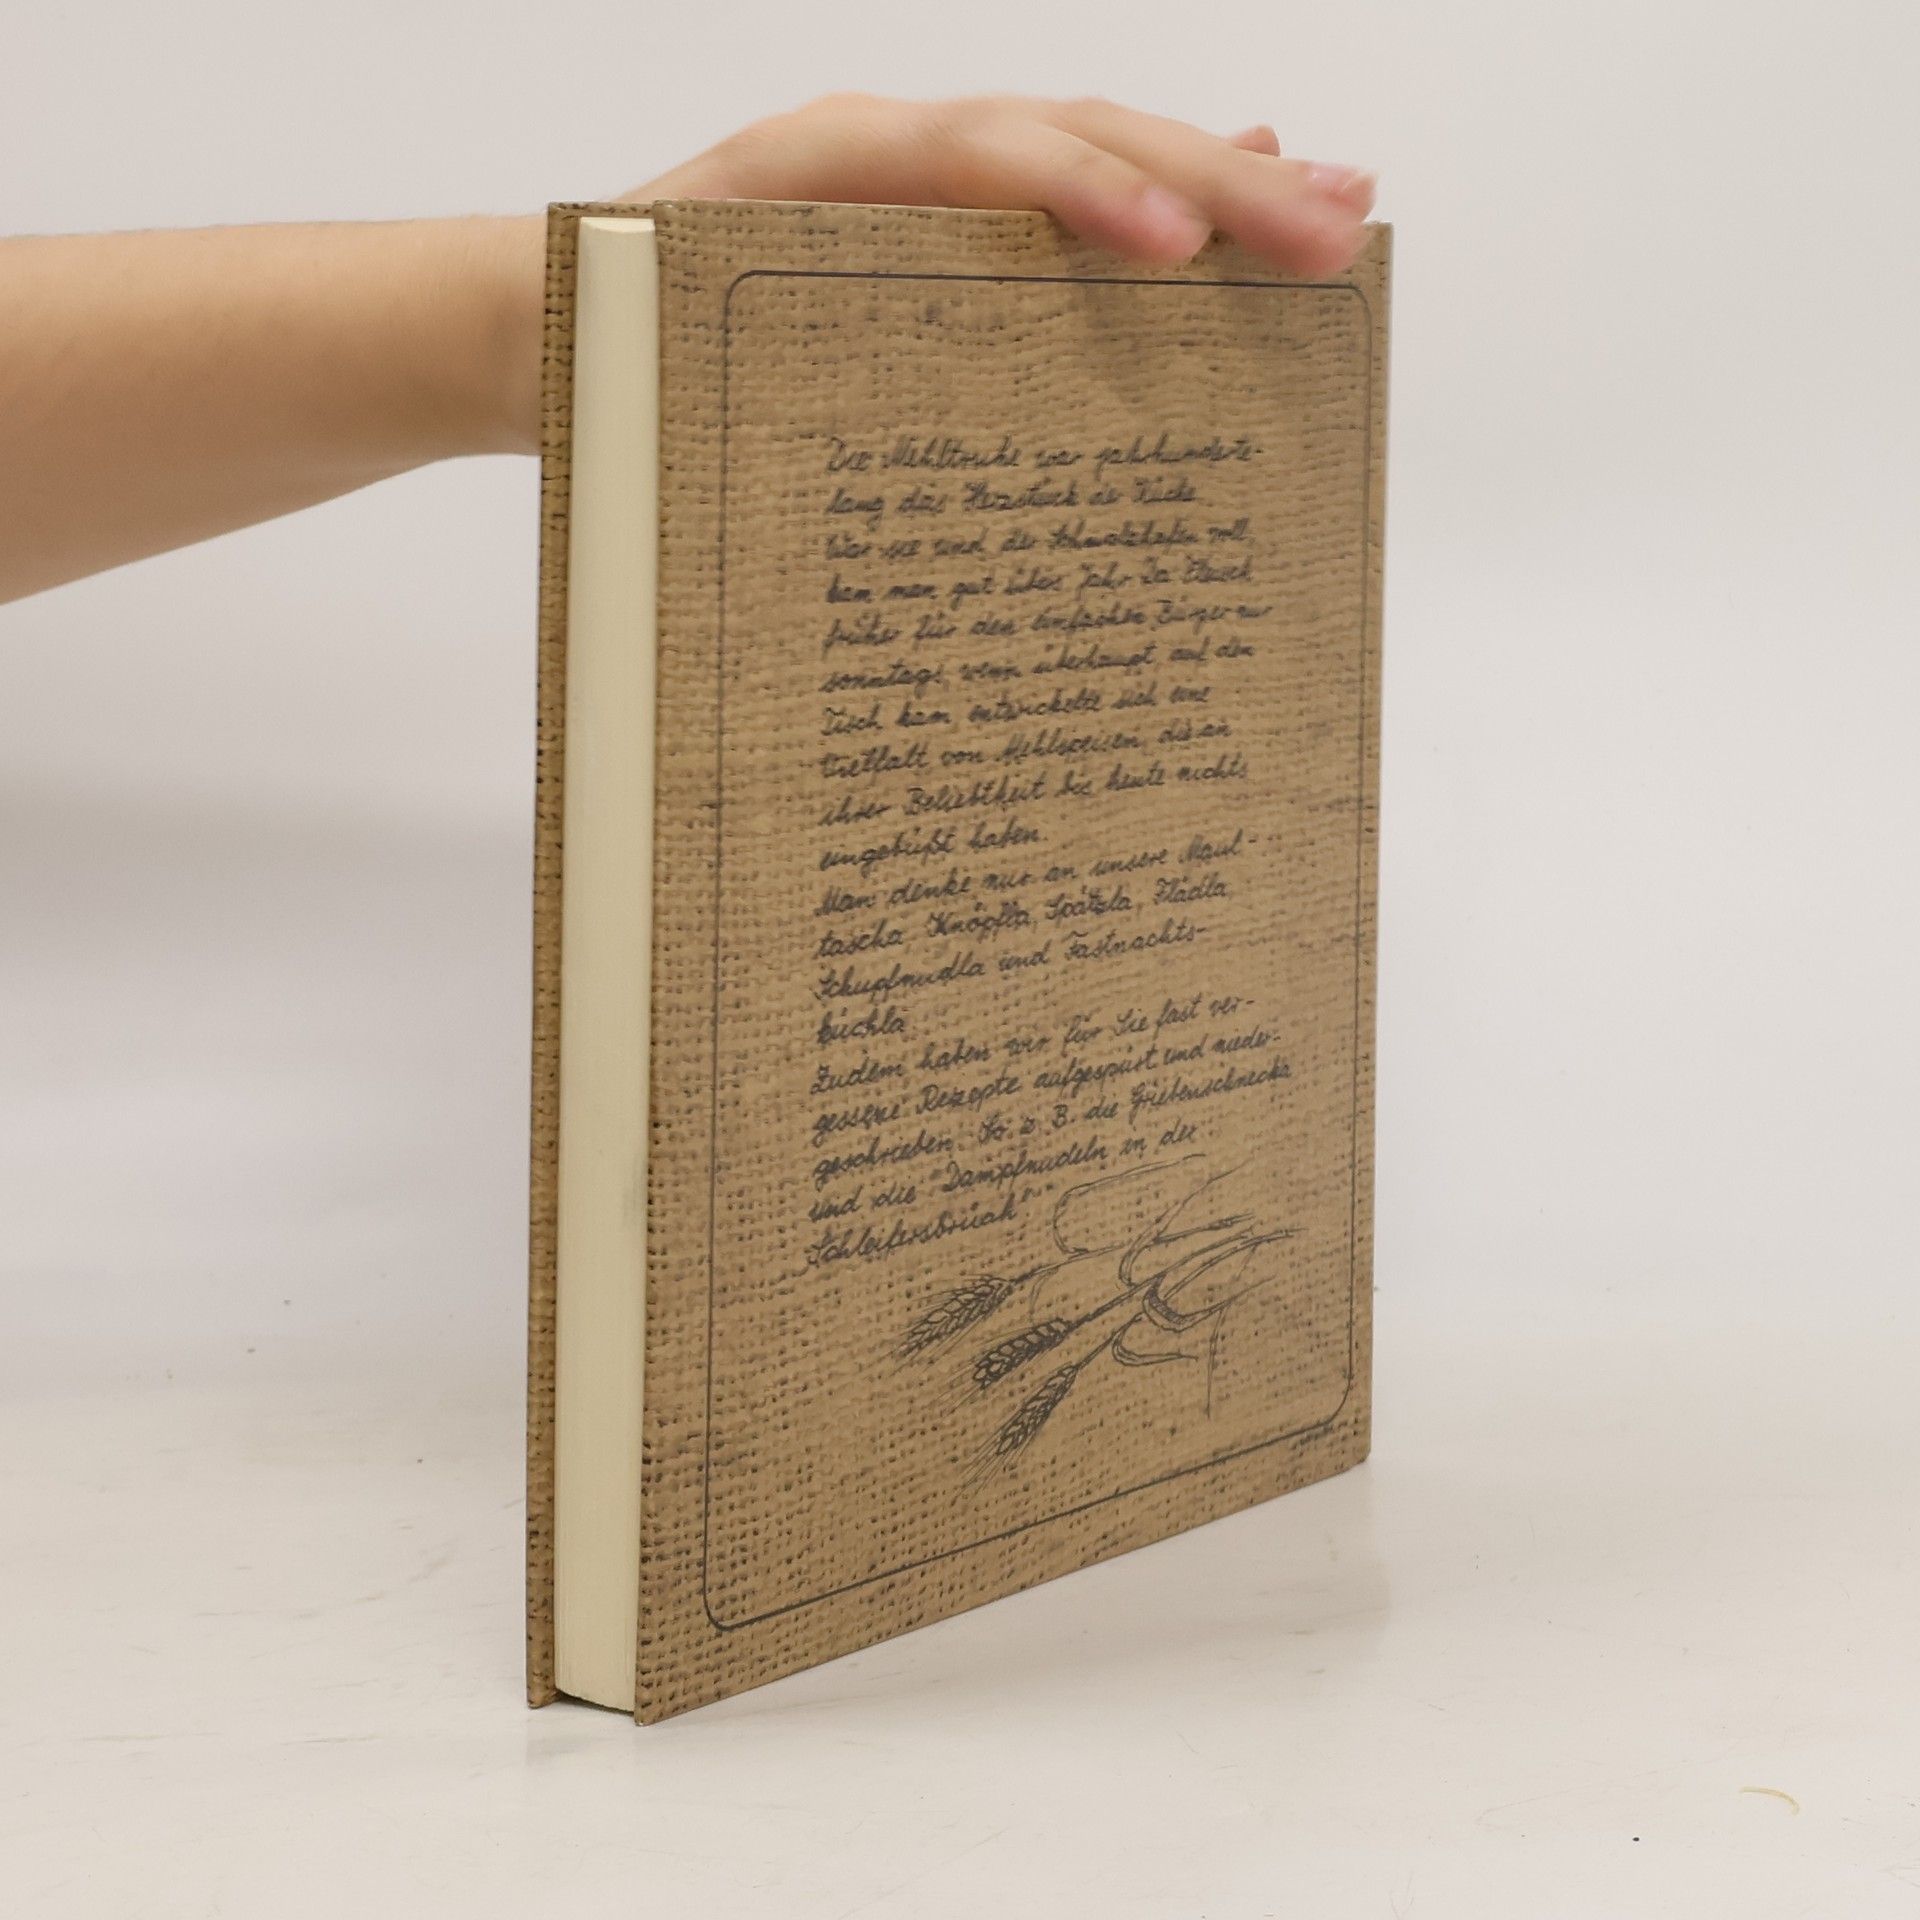 Die Mehltruhe war jahrhunderte-
lang das Herzstück der Küche.
War sie und der Schmalzhafen voll,
kam man gut übers Jahr. Da Fleisch
früher für den einfachen Bürger nur
sonntags, wenn überhaupt, auf den
Tisch kam, entwickelte sich eine
Vielfalt von Mehlspeisen, die an
ihrer Beliebtheit bis heute nichts
eingebüßt haben.
Man denke nur an unsere Maul-
tascha, Knöpfla, Spätzla, Flädla,
Schupfnudla und Fastnachts-
küchla.
Zudem haben wir für Sie fast ver-
gessene Rezepte aufgespürt und nieder-
geschrieben. So z. B. die Griebenschnecka
und die "Dampfnudeln in der
Schleifersbrüah".